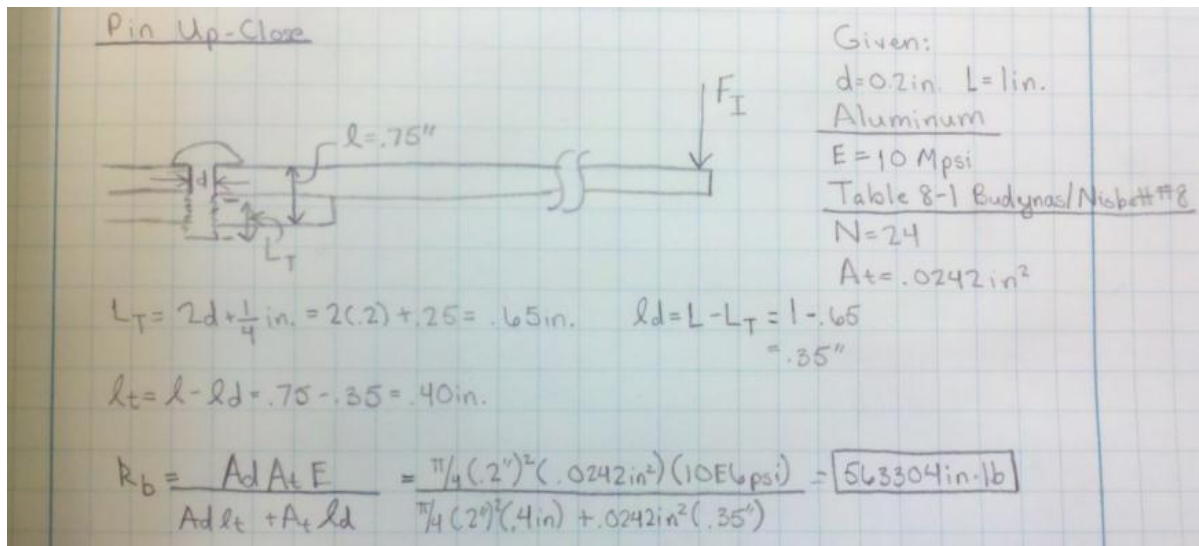 Pin Up-Close
Given:
d=0.2in. L=1in.
Aluminum
E=10 Mpsi
Table 8-1 Budynas/Nisbett #8
N=24
At=.0242in²
F_I
l=.75"
d
L_T
L_T=2d+1/4in.=2(.2)+.25=.65in.
ld=L-L_T=1-.65
=.35"
lt=l-ld=.75-.35=.40in.
k_b=Ad At E/(Ad lt+At ld)=π/4(.2")²(.0242in²)(10E6psi)/(π/4(.2")²(.4in)+.0242in²(.35"))=563304in·lb